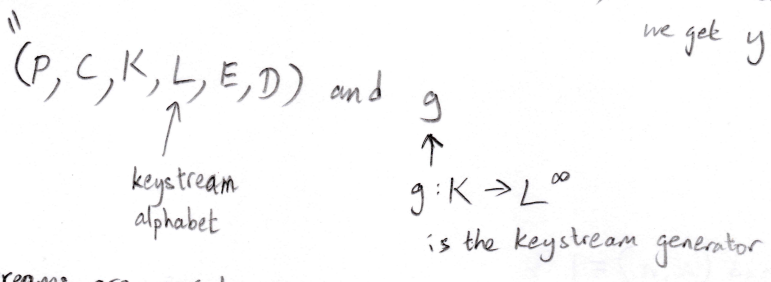 we get y
"(P, C, K, L, E, D) and g
↑ ↑
keystream
alphabet
g : K → L^∞
is the keystream generator
are